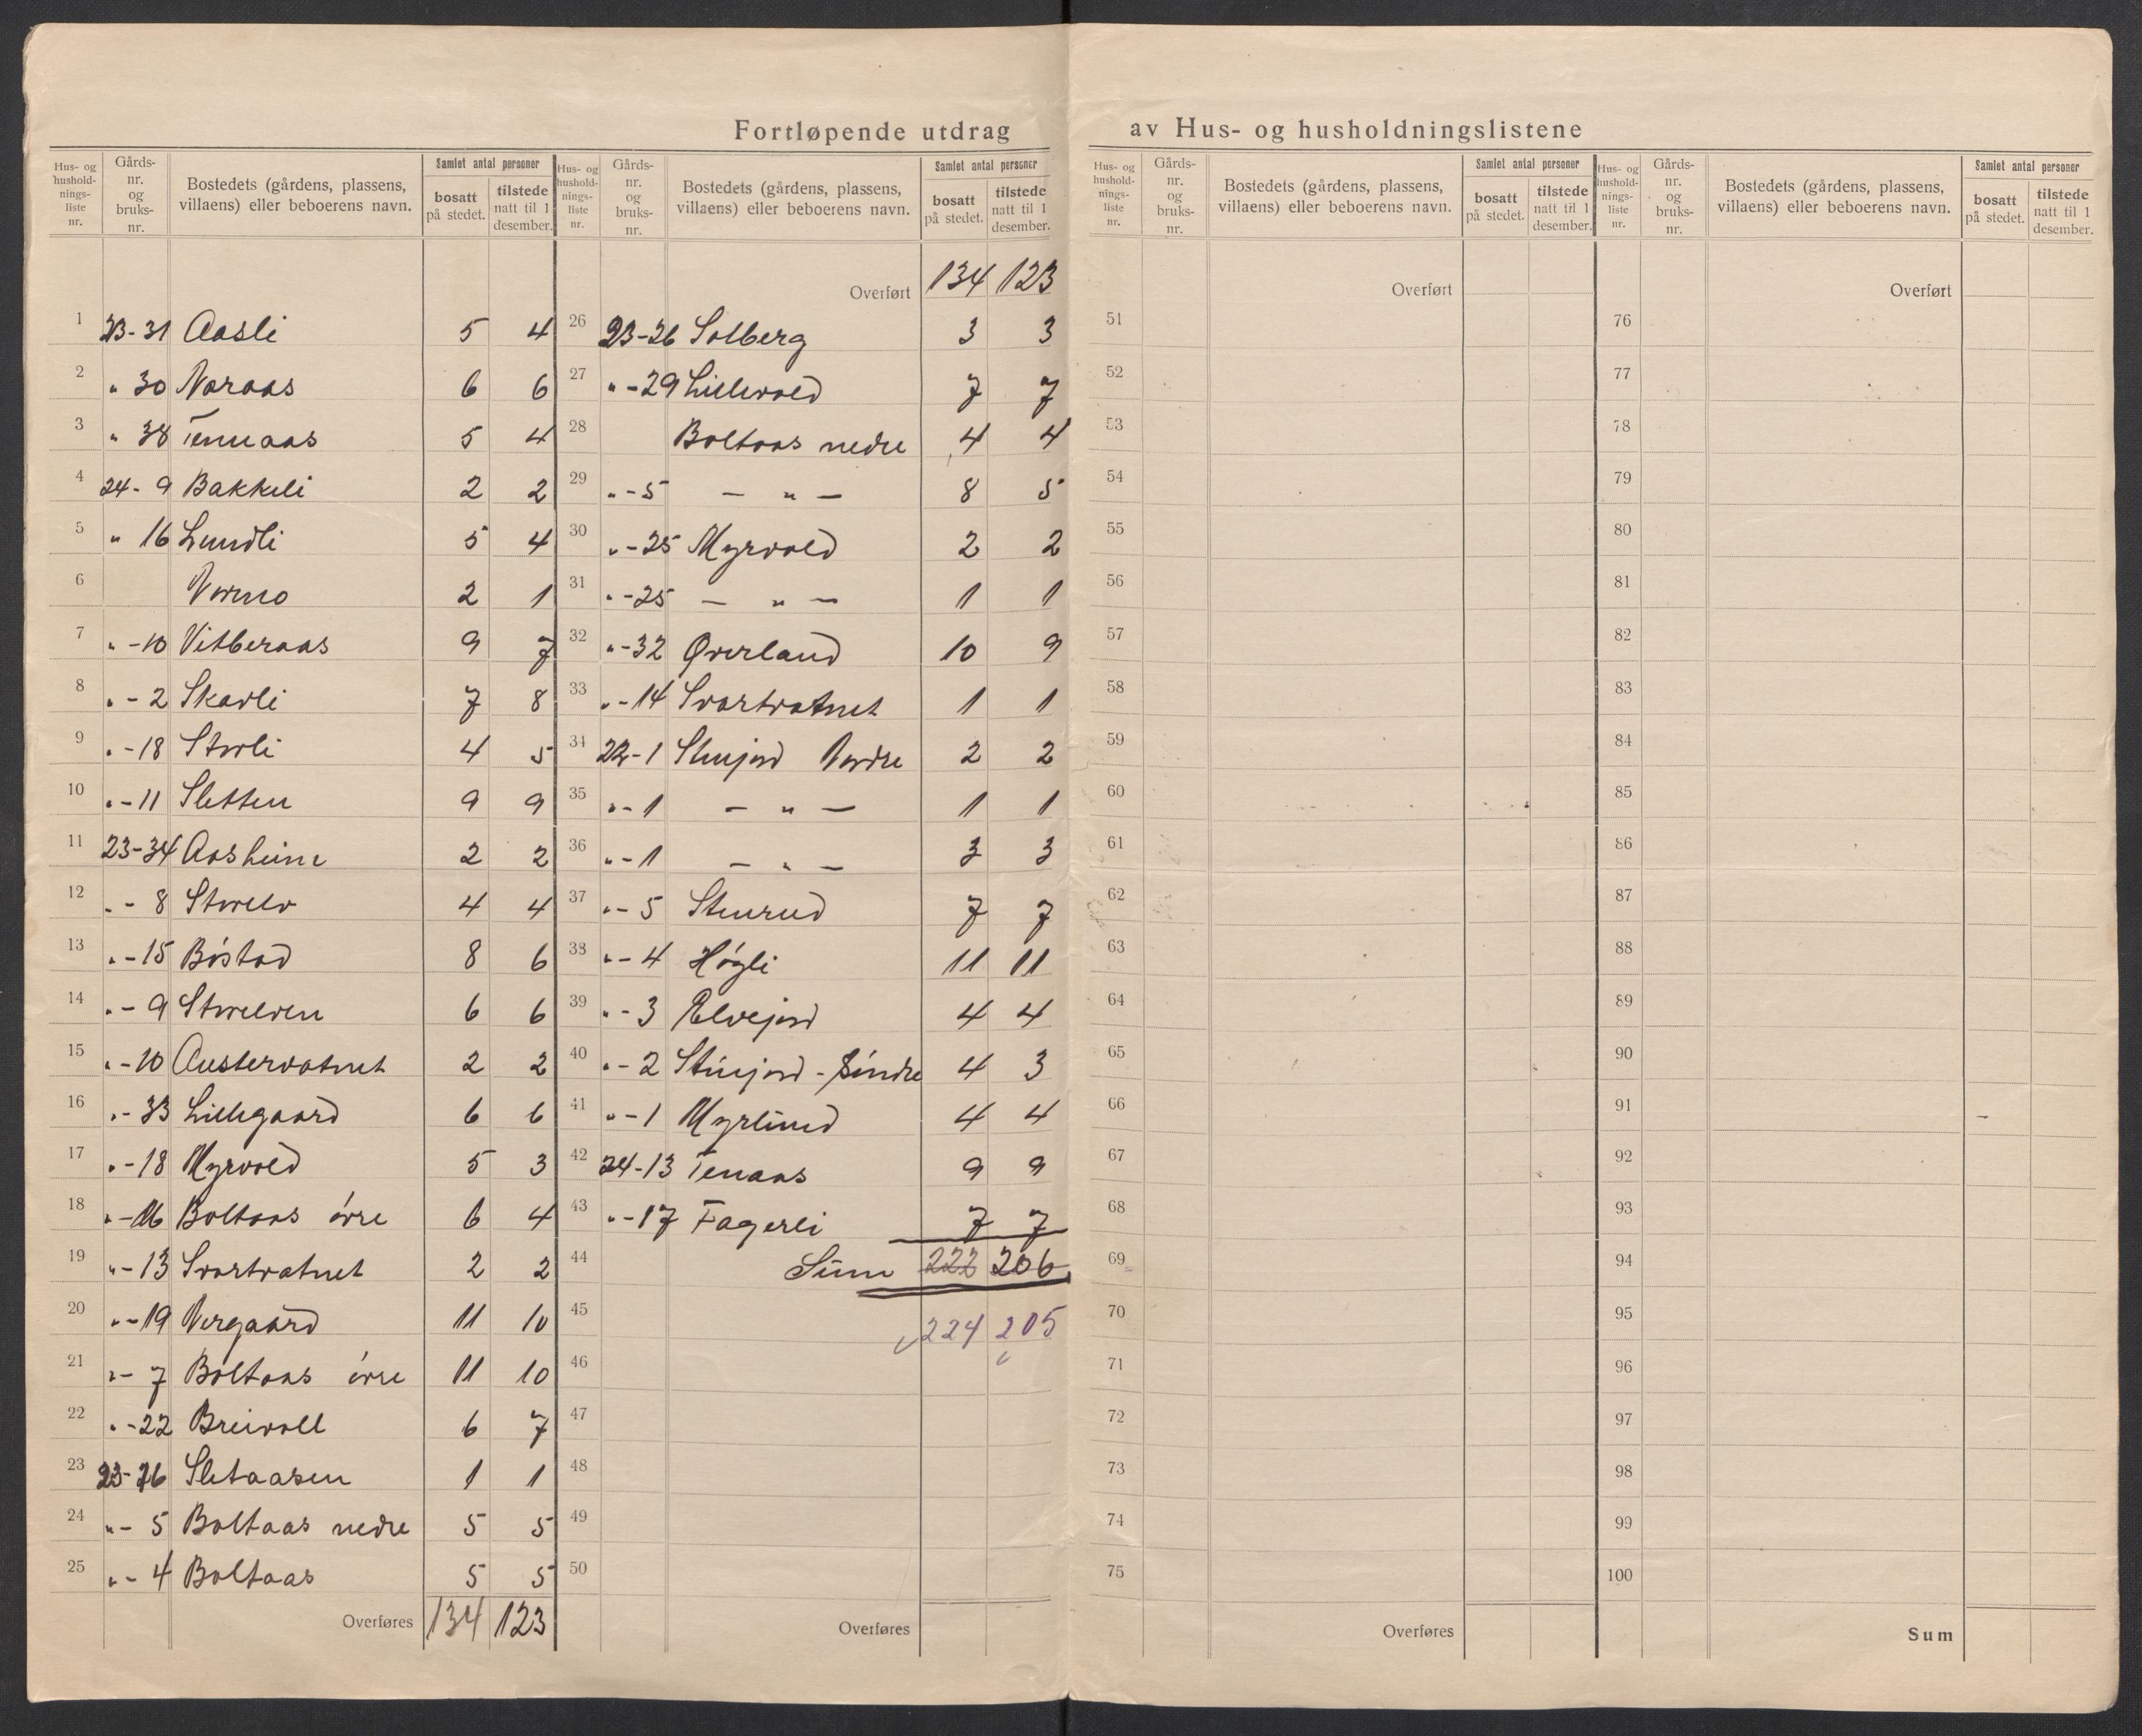 Fortløpende utdrag av Hus- og husholdningslistene
Hus- og husholdnings-liste nr. Gårds-nr. og bruks-nr. Bostedets (gårdens, plassens, villaens) eller beboerens navn. Samlet antal personer bosatt på stedet. tilstede natt til 1 desember.
1 23-31 Aasli 5 4
2 " 30 Noraas 6 6
3 " 38 Tennaas 5 4
4 24-9 Bakkeli 2 2
5 " 16 Lundli 5 4
6 Vormo 2 1
7 "-10 Vitberaas 9 7
8 "-2 Skavli 7 8
9 "-18 Storli 4 5
10 "-11 Sletten 9 9
11 23-34 Aasheim 2 2
12 "-8 Storelv 4 4
13 "-15 Bóstad 8 6
14 "-9 Storelven 6 6
15 "-10 Austervatnet 2 2
16 "-33 Lillegaard 6 6
17 "-18 Myrvold 5 3
18 "-16 Boltaas óvre 6 4
19 "-13 Svartvatnet 2 2
20 "-19 Vergaard 11 10
21 "-7 Boltaas óvre 11 10
22 "-22 Breivoll 6 7
23 23-26 Sletaasen 1 1
24 "-5 Boltaas nedre 5 5
25 "-4 Boltaas 5 5
Overføres 134 123
Hus- og husholdnings-liste nr. Gårds-nr. og bruks-nr. Bostedets (gårdens, plassens, villaens) eller beboerens navn. Samlet antal personer bosatt på stedet. tilstede natt til 1 desember.
Overført 134 123
26 23-26 Solberg 3 3
27 "-29 Lillevold 7 7
28 Boltaas nedre 4 4
29 "-5 — " — 8 5
30 "-25 Myrvold 2 2
31 "-25 — " — 1 1
32 "-32 Øverland 10 9
33 "-14 Svartvatnet 1 1
34 22-1 Stenjord Nordre 2 2
35 "-1 — " — 1 1
36 "-1 — " — 3 3
37 "-5 Stenrud 7 7
38 "-4 Høgli 11 11
39 "-3 Elvejord 4 4
40 "-2 Stenjord - Søndre 4 3
41 "-1 Myrlund 4 4
42 24-13 Tenaas 9 9
43 "-17 Fagerli 7 7
44 Sum 222 206
45 224 205
46
47
48
49
50
Overføres
Hus- og husholdnings-liste nr. Gårds-nr. og bruks-nr. Bostedets (gårdens, plassens, villaens) eller beboerens navn. Samlet antal personer bosatt på stedet. tilstede natt til 1 desember.
Overført
51
52
53
54
55
56
57
58
59
60
61
62
63
64
65
66
67
68
69
70
71
72
73
74
75
Overføres
Hus- og husholdnings-liste nr. Gårds-nr. og bruks-nr. Bostedets (gårdens, plassens, villaens) eller beboerens navn. Samlet antal personer bosatt på stedet. tilstede natt til 1 desember.
Overført
76
77
78
79
80
81
82
83
84
85
86
87
88
89
90
91
92
93
94
95
96
97
98
99
100
Sum